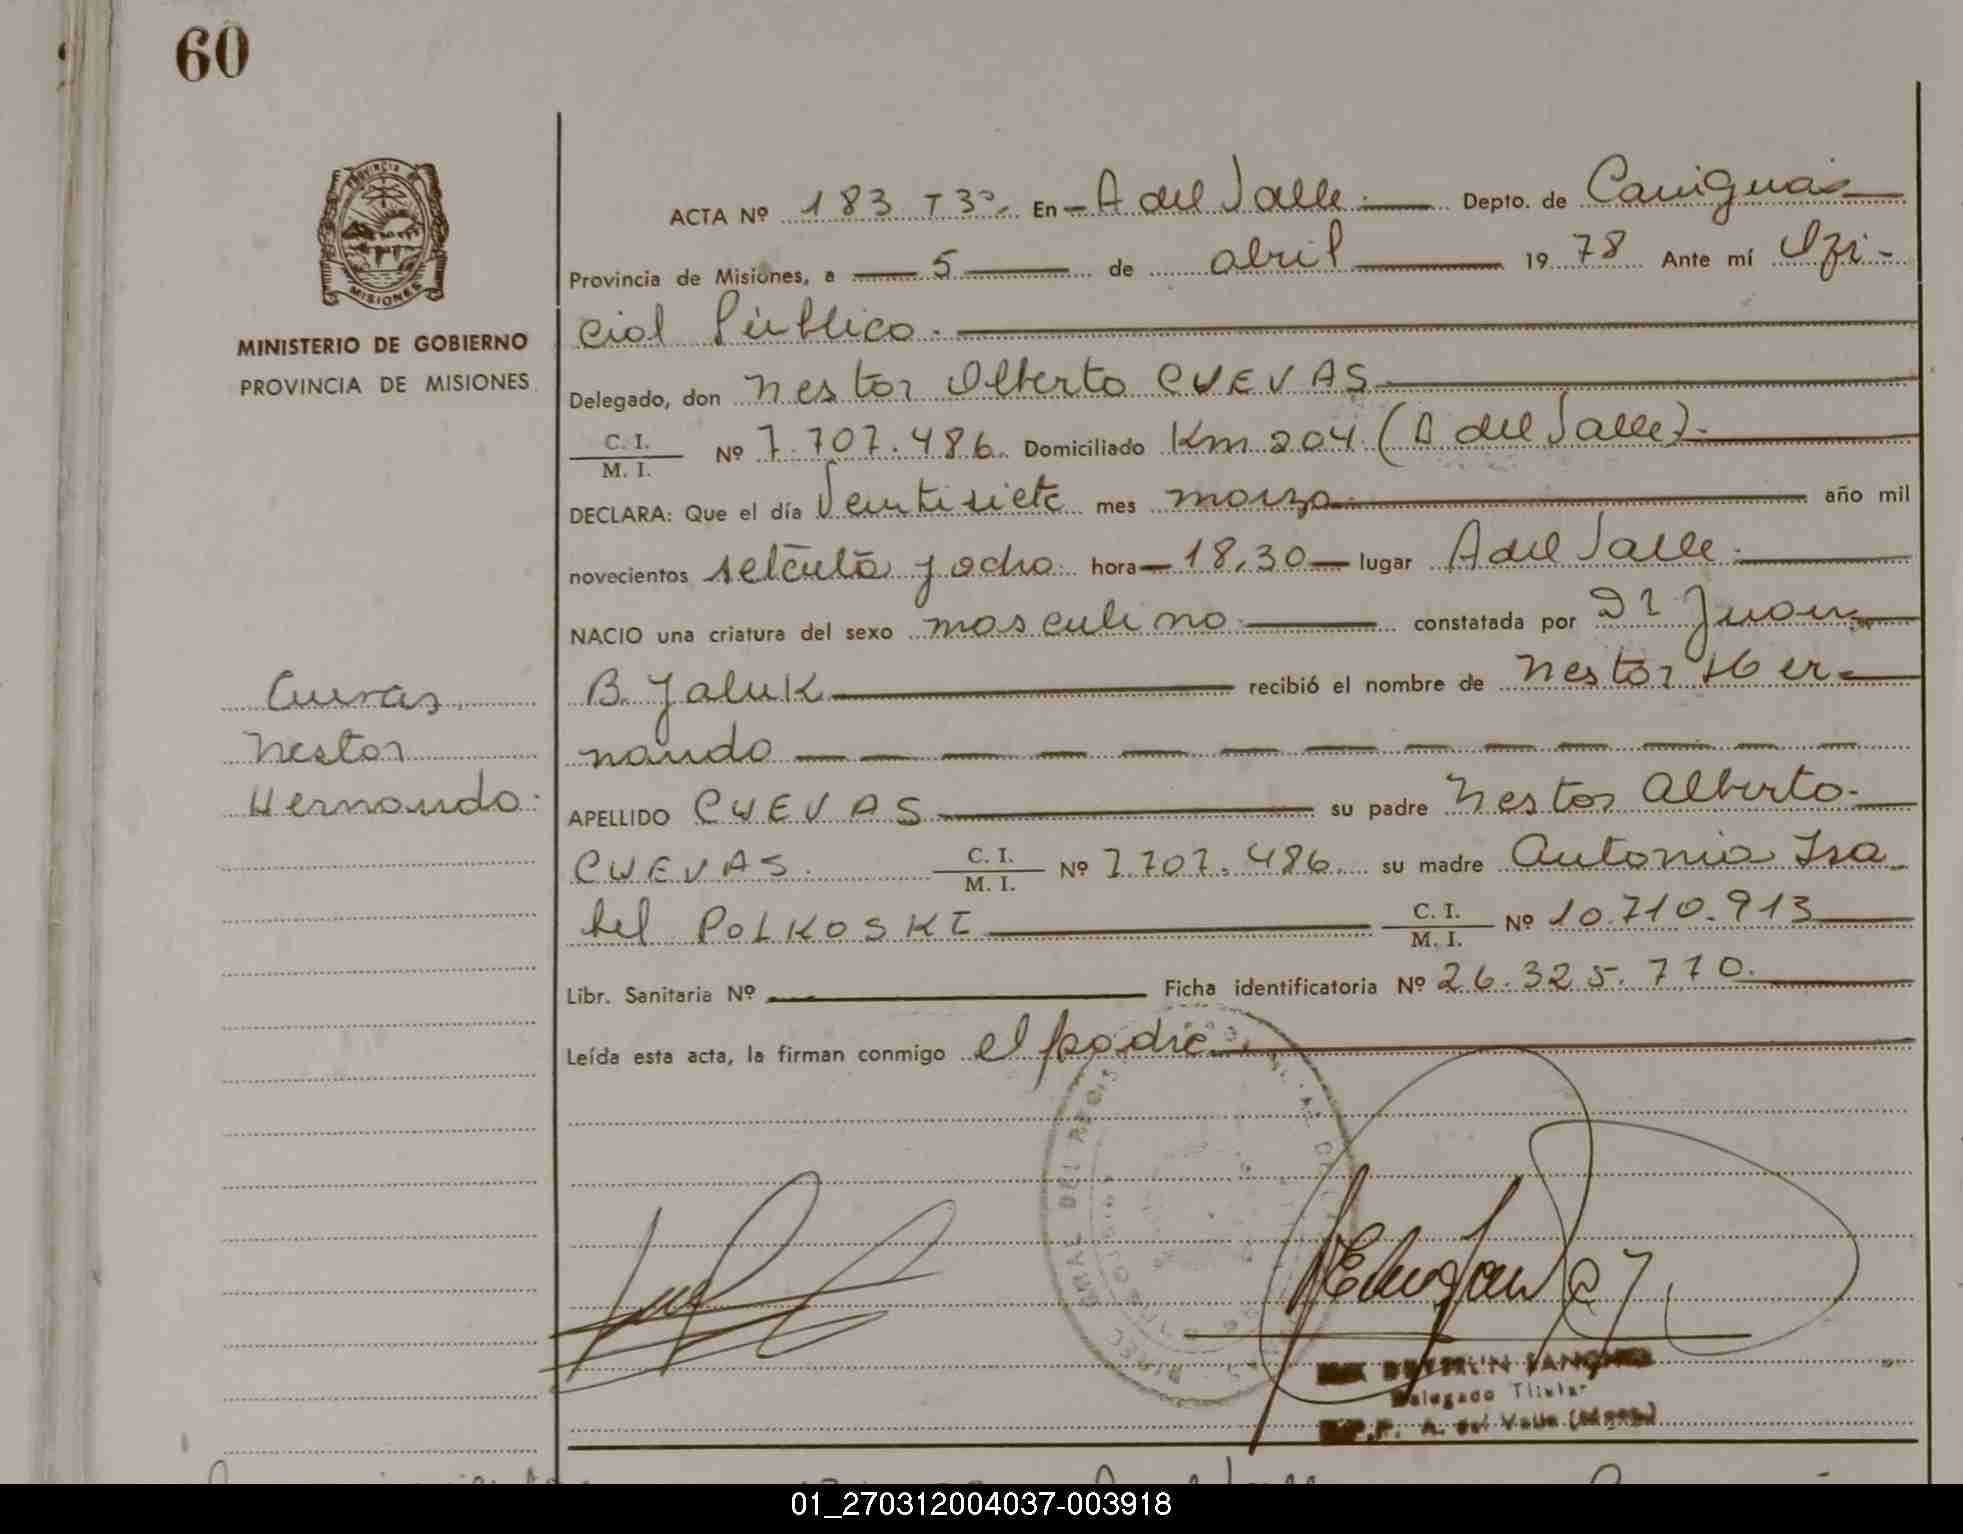 60
PROVINCIA DE
MISIONES
MINISTERIO DE GOBIERNO
PROVINCIA DE MISIONES
ACTA Nº 183 T3º. En A del Valle. Depto. de Cainguás
Provincia de Misiones, a 5 de abril 1978 Ante mí Ofi-
cial Público.
Delegado, don Nestor Alberto CUEVAS
C. I.
M. I. Nº 7.707.486. Domiciliado Km 204 (A del Valle).
DECLARA: Que el día Veintisiete mes marzo. año mil
novecientos setenta y ocho. hora 18,30 lugar A del Valle.
NACIO una criatura del sexo masculino constatada por Dr Juan
B. Yaluk recibió el nombre de Nestor Her-
nando
Cuevas,
Nestor
Hernando.
APELLIDO CUEVAS su padre Nestor Alberto.
CUEVAS. C. I.
M. I. Nº 7.707.486. su madre Antonia Isa
bel POLKOSKI C. I.
M. I. Nº 10.710.913
Libr. Sanitaria Nº Ficha identificatoria Nº 26.325.770.
Leída esta acta, la firman conmigo el padre.
Delegado Titular
A. del Valle
01_270312004037-003918